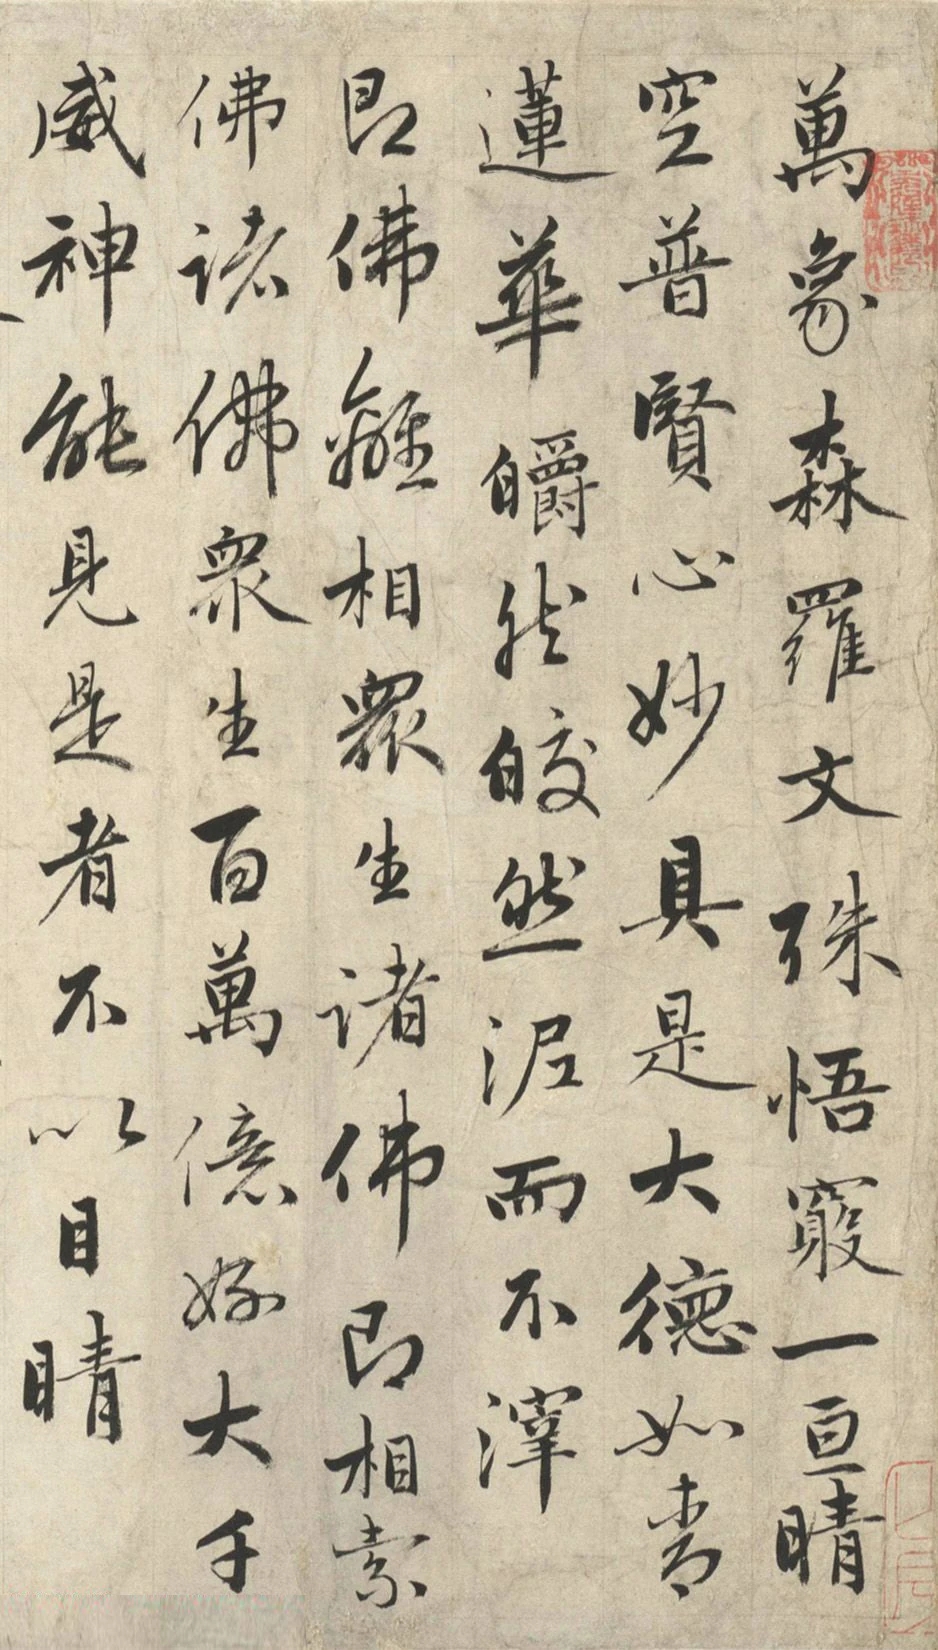 萬象森羅文殊悟竅一亘晴
空普賢心妙具是大德如青
蓮華皭然皎然泥而不滓
即佛離相眾生諸佛即相索
佛諸佛眾生百萬億好大千
威神能見是者不以目睛